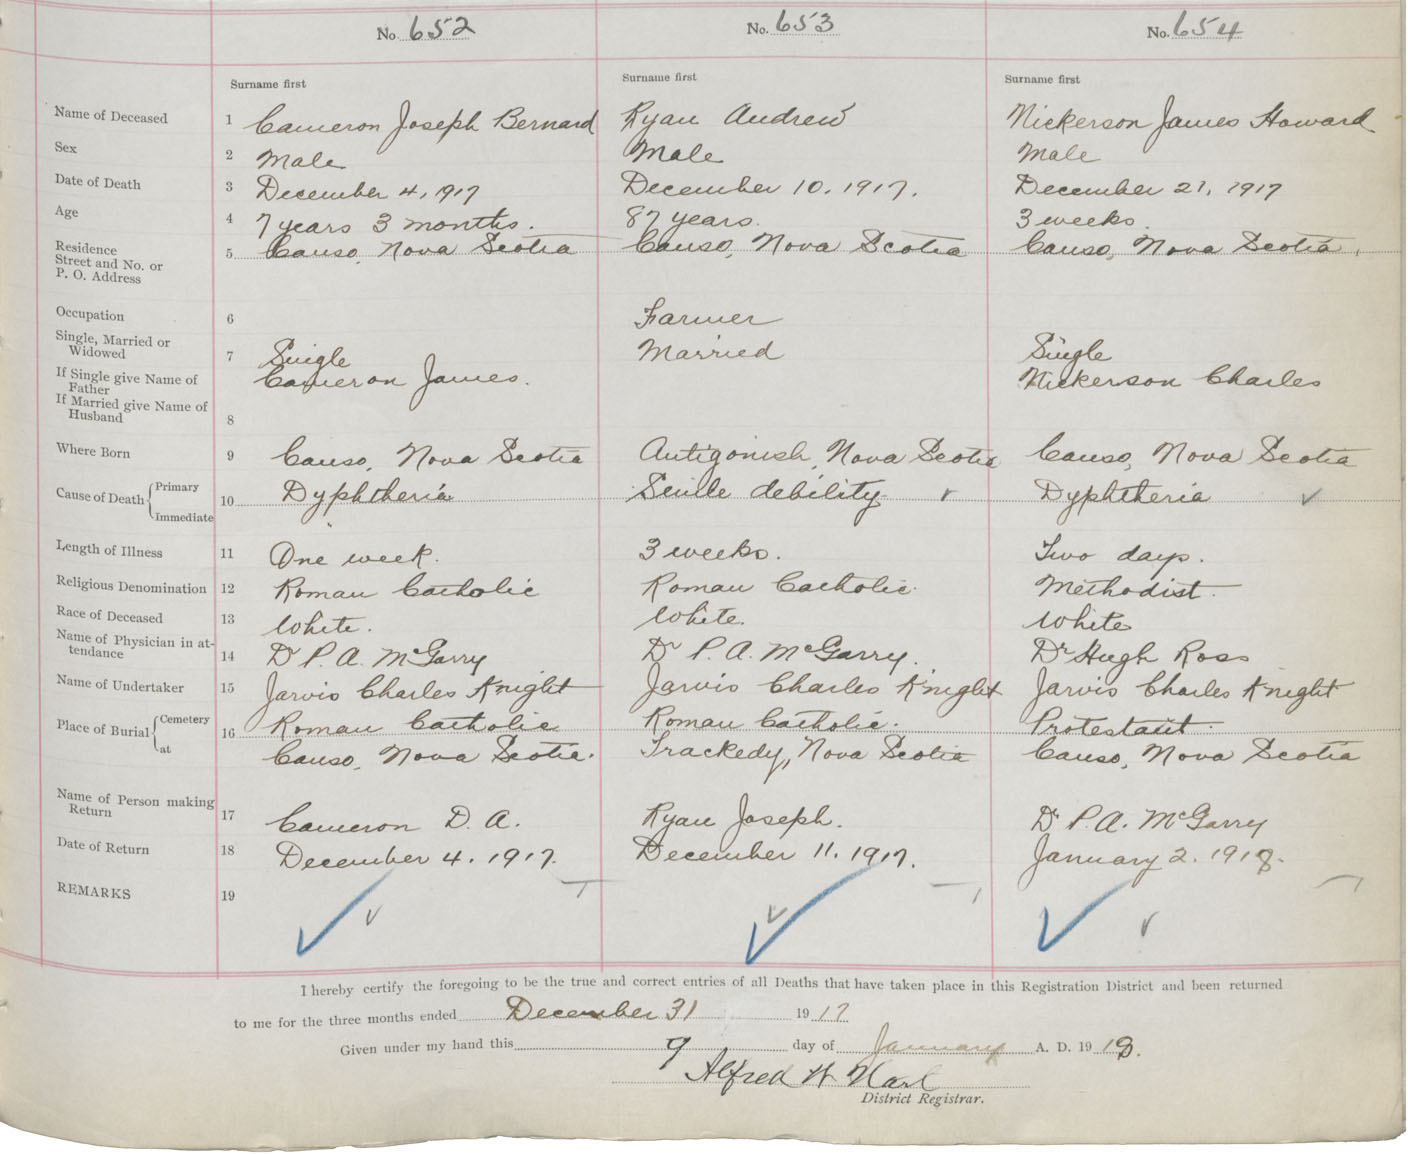 No. 652 No. 653 No. 654
Surname first Surname first Surname first
Name of Deceased 1 Cameron Joseph Bernard Ryan Andrew Nickerson James Howard
Sex 2 Male Male Male
Date of Death 3 December 4, 1917 December 10, 1917. December 21, 1917
Age 4 7 years 3 months. 87 years. 3 weeks.
Residence
Street and No. or
P. O. Address 5 Canso, Nova Scotia Canso, Nova Scotia Canso, Nova Scotia.
Occupation 6 Farmer
Single, Married or
Widowed 7 Single Married Single
If Single give Name of
Father Cameron James. Nickerson Charles
If Married give Name of
Husband 8
Where Born 9 Canso, Nova Scotia Antigonish, Nova Scotia Canso, Nova Scotia
Cause of Death Primary
Immediate 10 Dyphtheria Senile debility Dyphtheria
Length of Illness 11 One week. 3 weeks. Two days.
Religious Denomination 12 Roman Catholic Roman Catholic. Methodist.
Race of Deceased 13 White. White. White
Name of Physician in at-
tendance 14 Dr P. A. McGarry Dr P. A. McGarry. Dr Hugh Ross
Name of Undertaker 15 Jarvis Charles Knight Jarvis Charles Knight Jarvis Charles Knight
Place of Burial Cemetery 16 Roman Catholic Roman Catholic. Protestant.
at Canso, Nova Scotia. Trackedy, Nova Scotia Canso, Nova Scotia
Name of Person making
Return 17 Cameron D. A. Ryan Joseph. Dr P. A. McGarry
Date of Return 18 December 4. 1917. December 11. 1917. January 2. 1918.
REMARKS 19
I hereby certify the foregoing to be the true and correct entries of all Deaths that have taken place in this Registration District and been returned
to me for the three months ended December 31 1917
Given under my hand this 9 day of January A. D. 1918.
Alfred W Hart
District Registrar.